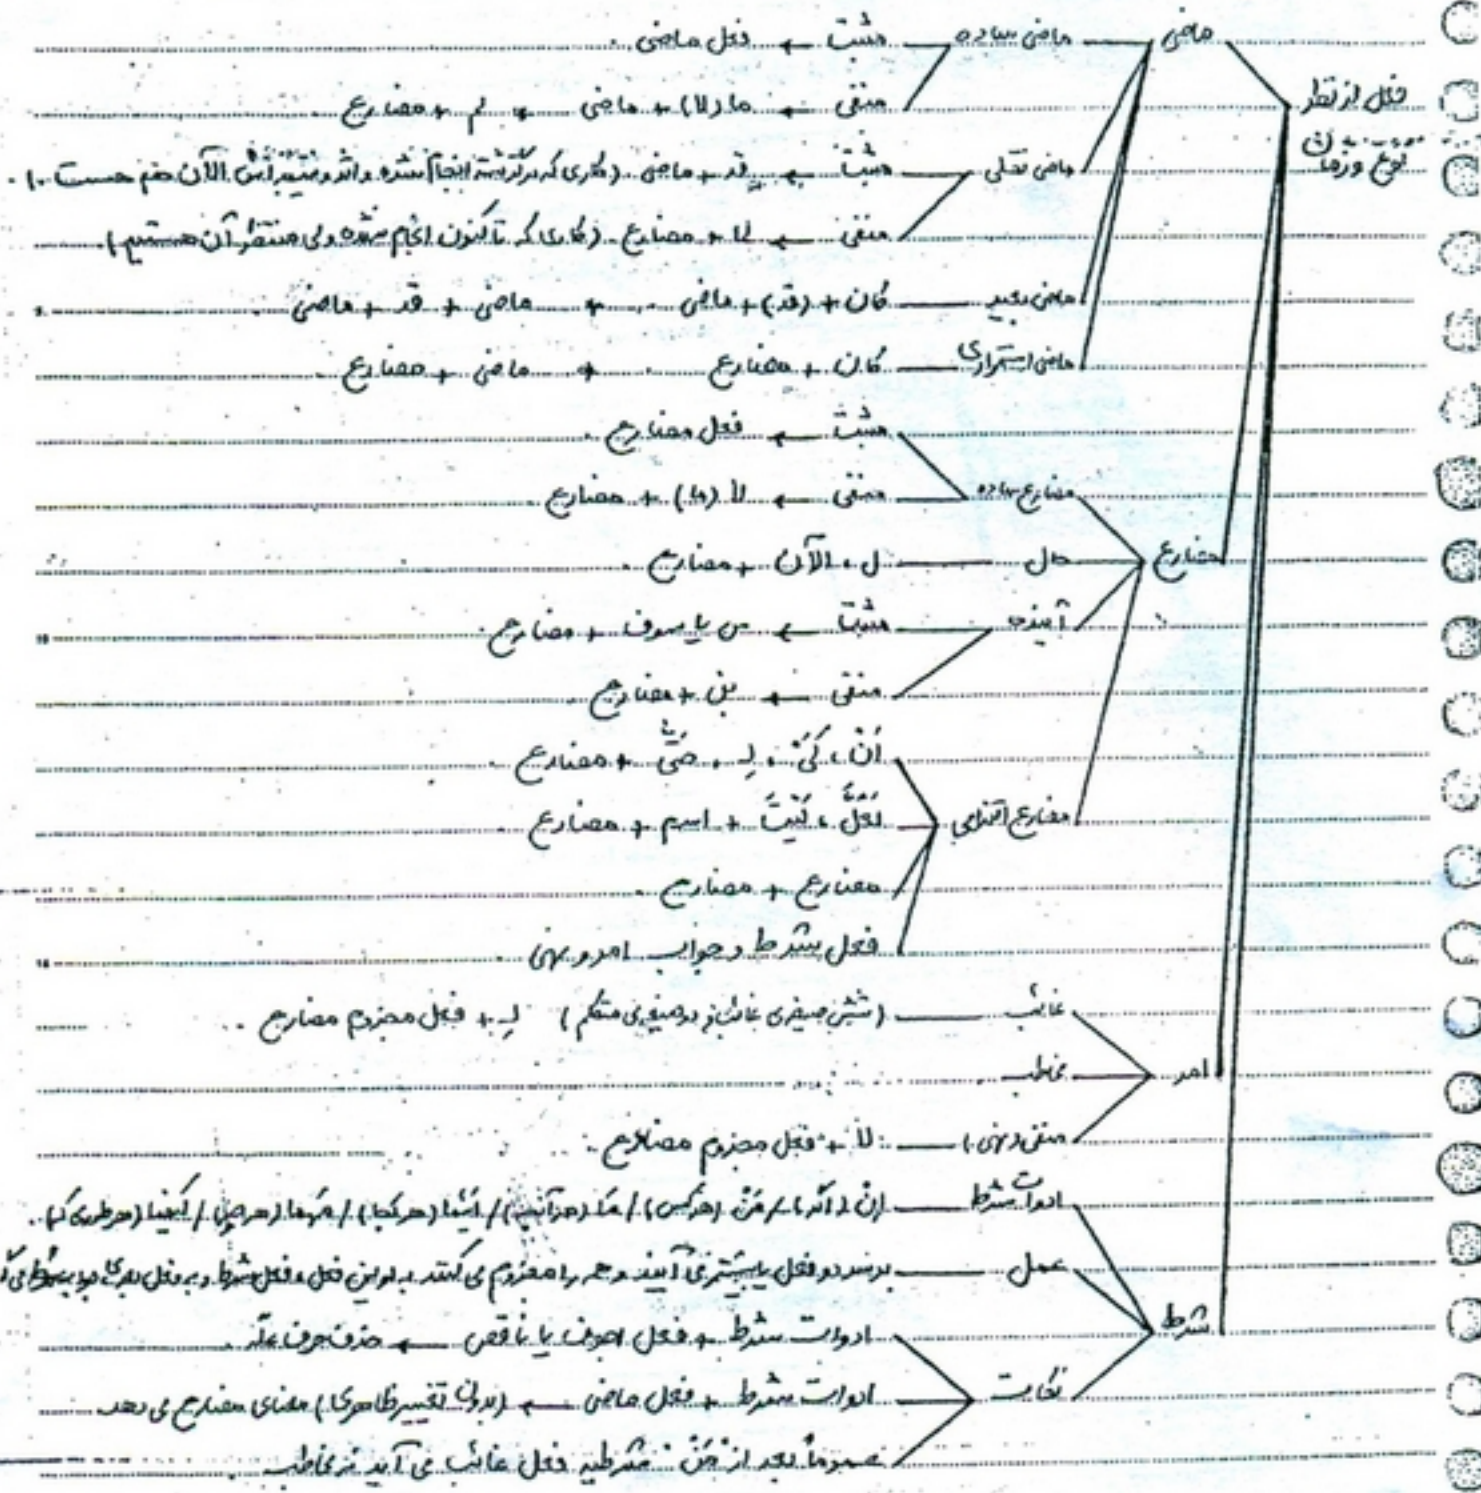 ماضی ماضی ساده مثبت ← فعل ماضی .
فعل از نظر
نوع و زمان
منفی ← ما (لا) + ماضی ، لم + مضارع
ماضی نقلی مثبت ← قد + ماضی . (کاری که در گذشته انجام شده و اثر و نتیجه‌اش الآن هم هست .)
منفی ← لمّا + مضارع . (کاری که تاکنون انجام نشده ولی منتظر آن هستیم) .
ماضی بعید کان + (قد) + ماضی ، ماضی + قد + ماضی
ماضی استمراری کان + مضارع ، ماضی + مضارع .
مثبت ← فعل مضارع .
مضارع ساده منفی ← لا (ما) + مضارع .
مضارع حال ل ، الآن + مضارع .
آینده مثبت ← س یا سوف + مضارع .
منفی ← لن + مضارع .
أنْ ، کَیْ ، لِـ ، حَتَّی + مضارع .
مضارع التزامی لَعَلَّ ، لَیْتَ + اسم + مضارع
مضارع + مضارع .
فعل شرط و جواب امر و نهی .
غائب (شش صیغه‌ی غائب و دو صیغه‌ی متکلم) لِـ + فعل مجزوم مضارع .
امر مخاطب
منفی (نهی) لا + فعل مجزوم مضارع .
ادوات شرط إنْ (اگر) / مَنْ (هرکس) / مَا (هرآنچه) / أَیْنَما (هرکجا) / مَهْما (هرچه) / کَیْفَما (هرطوری که) .
عمل بر سر دو فعل یا بیشتر می‌آیند و همه را مجزوم می‌کنند به اولین فعل ، فعل شرط و به فعل بعدی جواب شرط
شرط ادوات شرط + فعل اجوف یا ناقص ← حذف حرف علّه .
نکات ادوات شرط + فعل ماضی ← (بدون تغییر ظاهری) معنای مضارع می دهد .
عموماً بعد از مَنْ شرطیه فعل غائب می آید نه مخاطب .